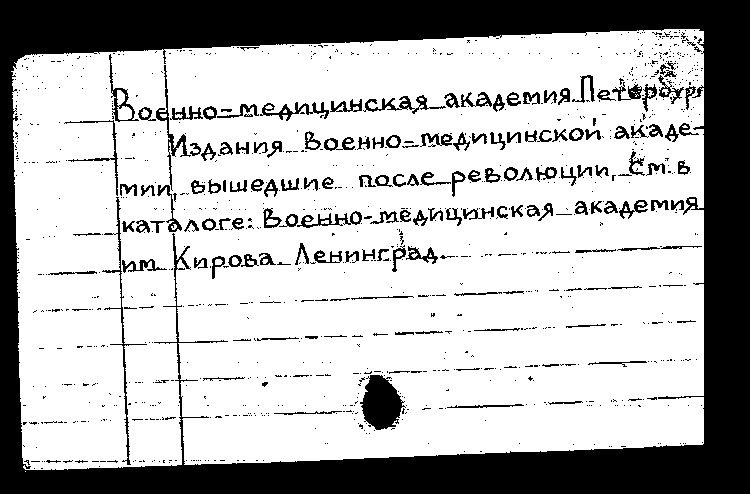 Военно-медицинская академия Петербург
Издания Военно-медицинской акаде-
мии, вышедшие после революции, см. в
каталоге: Военно-медицинская академия
им. Кирова. Ленинград.